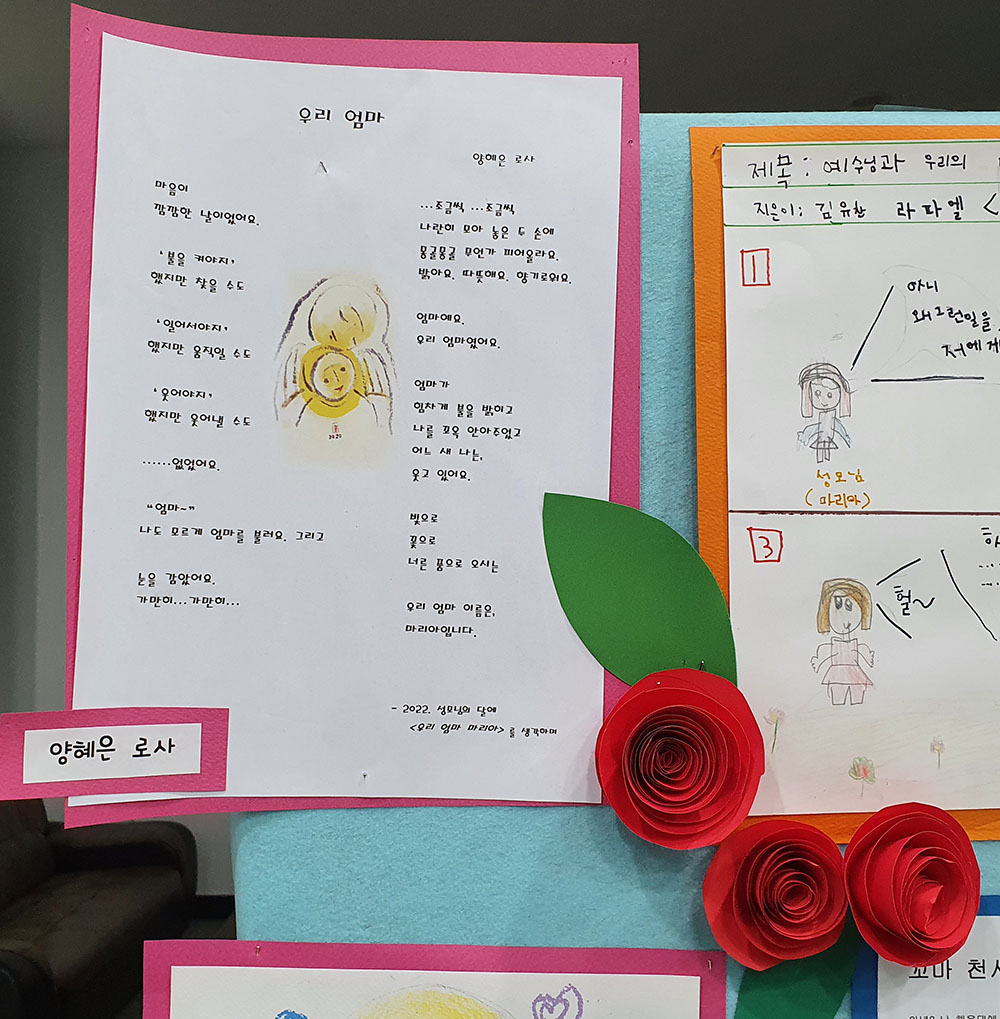 우리 엄마
양혜은 로사
마음이
깜깜한 날이었어요.
'불을 켜야지'
했지만 찾을 수도
'일어서야지'
했지만 움직일 수도
'웃어야지'
했지만 웃어낼 수도
......없었어요.
"엄마~"
나도 모르게 엄마를 불러요. 그리고
눈을 감았어요.
가만히...가만히...
...조금씩 ...조금씩
나란히 모아 놓은 두 손에
몽글몽글 무언가 피어올라요.
밝아요. 따뜻해요. 향기로워요.
엄마예요.
우리 엄마였어요.
엄마가
힘차게 불을 밝히고
나를 꼬옥 안아주었고
어느 새 나는,
웃고 있어요.
빛으로
꽃으로
너른 품으로 오시는
우리 엄마 이름은,
마리아입니다.
- 2022. 성모님의 달에
<우리 엄마 마리아>를 생각하며
2020
양혜은 로사
제목: 예수님과 우리의
지은이: 김유찬 라파엘 <
1
아니
왜 그런일을
저에게
성모님
(마리아)
3
헐~
꼬마 천사